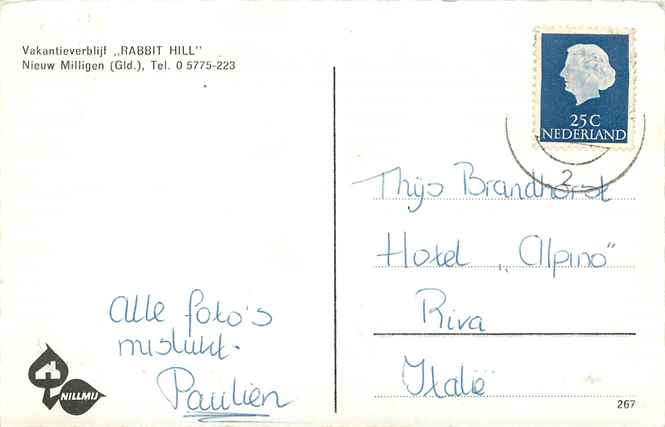 Vakantieverblijf „RABBIT HILL"
Nieuw Milligen (Gld.), Tel. 0 5775-223
25 C
NEDERLAND
2
Thijs Brandhorst
Hotel „Alpino"
Riva
Italië
Alle foto's
mislukt.
Paulien
NILLMIJ
267